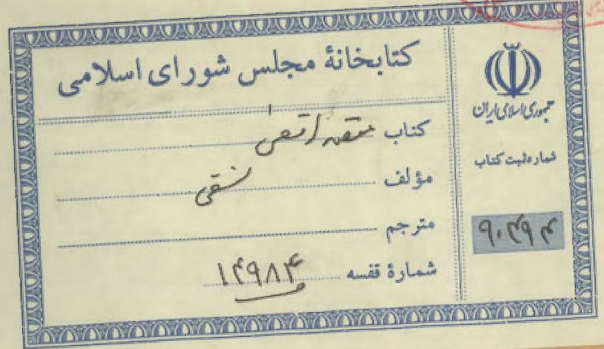 کتابخانهٔ مجلس شورای اسلامی
کتاب مقصد اقصی
مؤلف نسفی
مترجم
شمارهٔ قفسه ۱۴۹۸۴
جمهوری اسلامی ایران
شماره ثبت کتاب